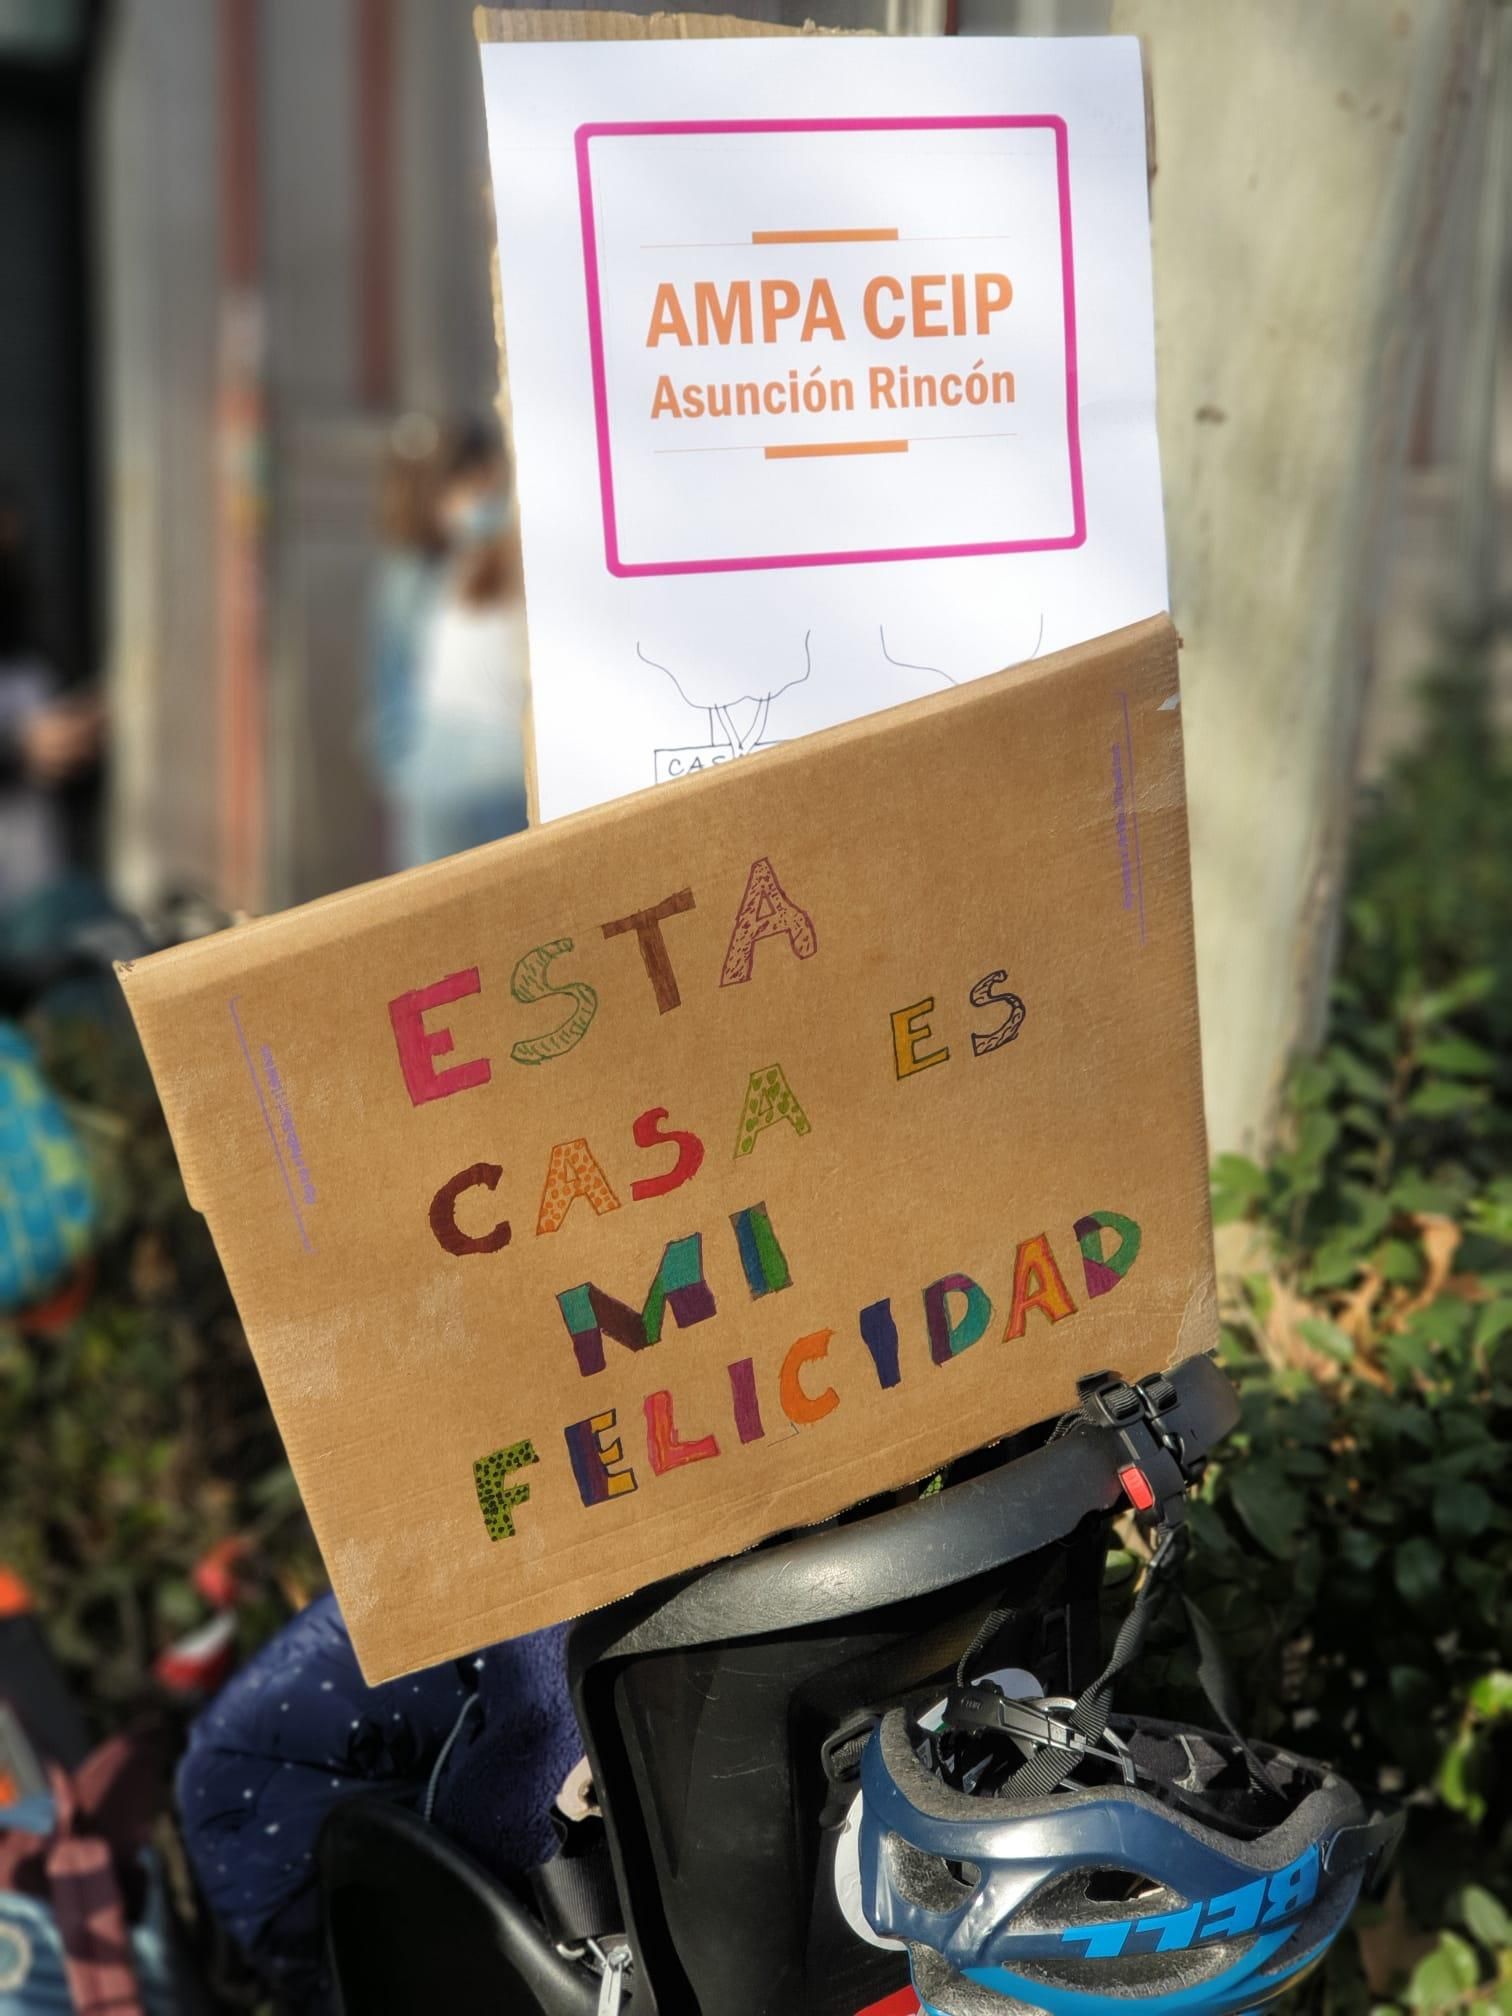 AMPA CEIP
Asunción Rincón
CAS
ESTA
CASA ES
MI
FELICIDAD
BELL